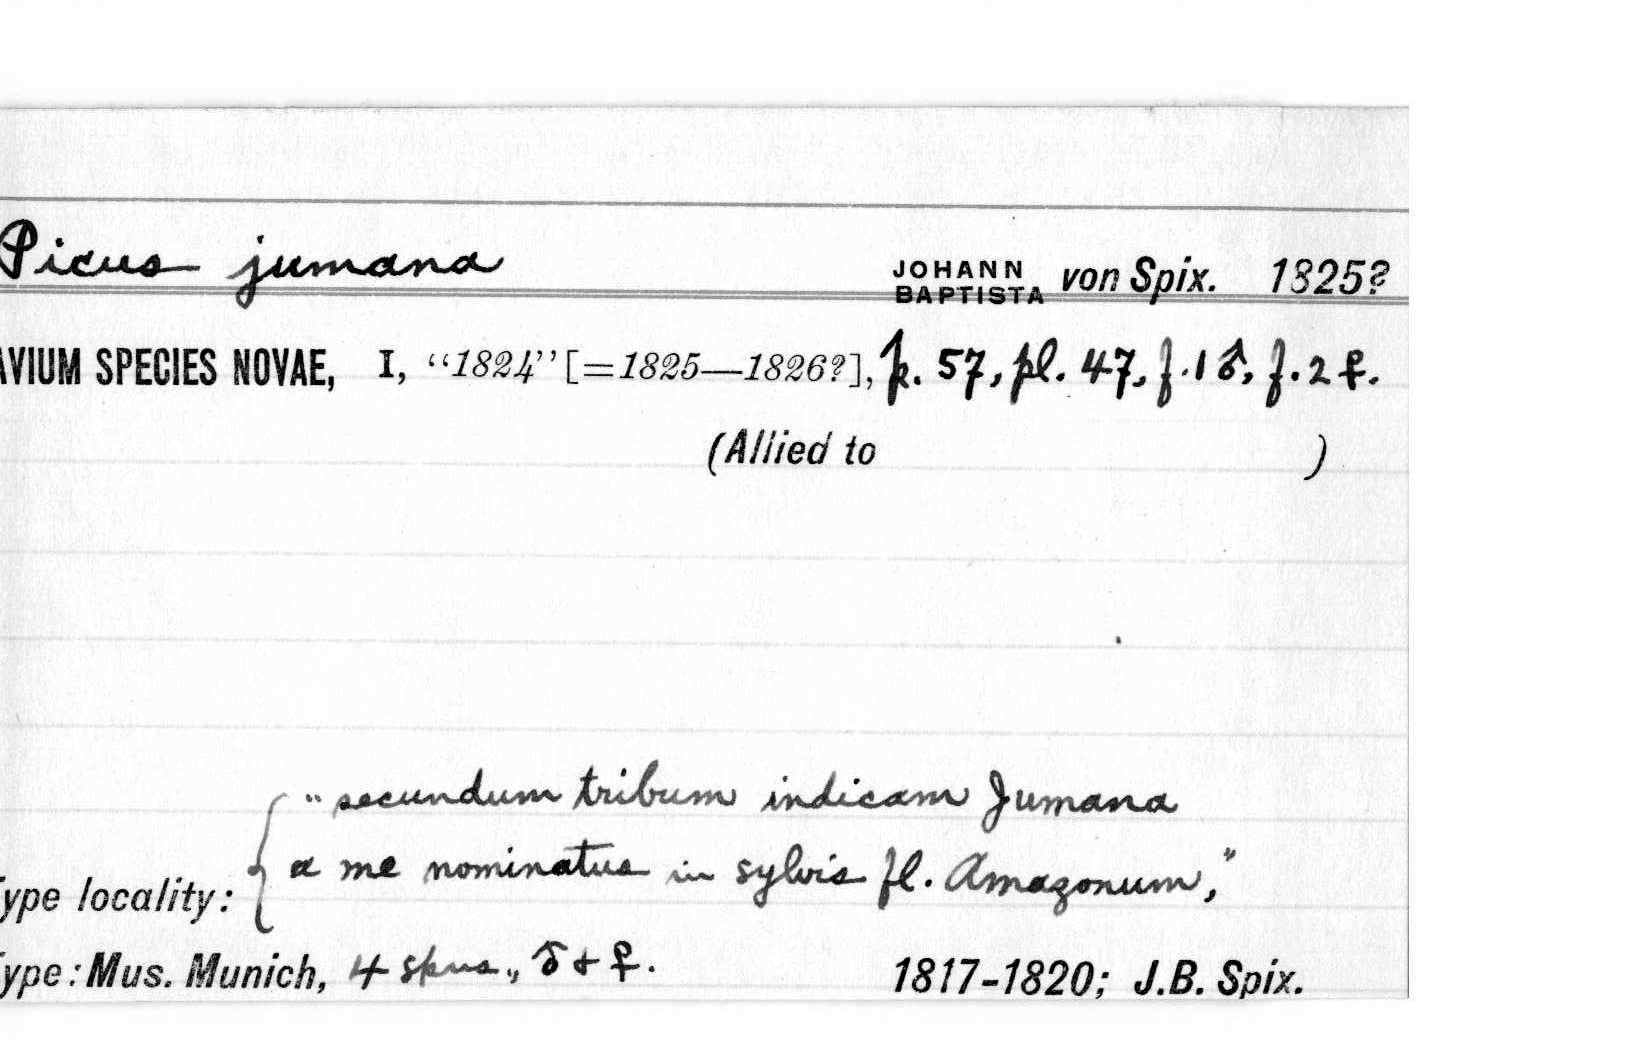 Picus jumana JOHANN BAPTISTA von Spix. 1825?
AVIUM SPECIES NOVAE, I, “1824” [=1825—1826?], p. 57, pl. 47, f. 1 ♂, f. 2 ♀.
(Allied to )
"secundum tribum indicam Jumana
a me nominatus in sylvis fl. Amazonum,"
Type locality:
Type: Mus. Munich, 4 spns., ♂ + ♀. 1817-1820; J.B. Spix.